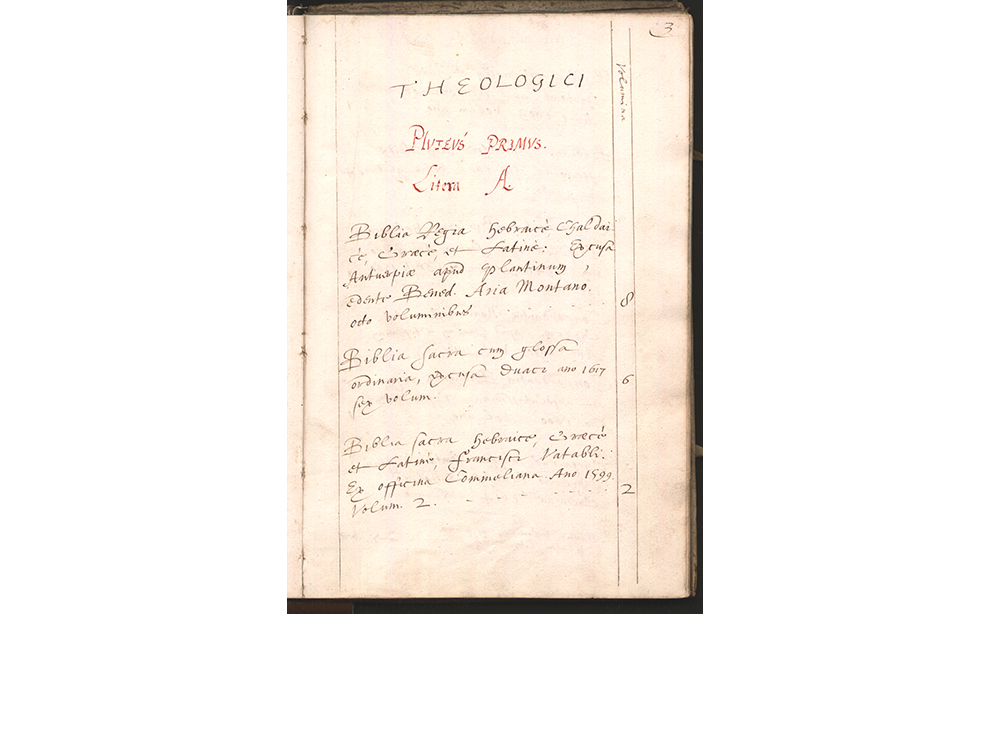 3
Volumina
THEOLOGICI
PLUTEUS PRIMUS.
Litera A.
Biblia Regia hebraicè, Chaldai-
cè, Græcè, et Latinè: Excusa
Antuerpiæ apud Plantinum,
edente Bened. Aria Montano.
octo voluminibus 8
Biblia sacra cum glossa
ordinaria, excusa Duaci ano 1617
sex volum. 6
Biblia sacra hebraice, Græcè
et Latinè, Francisci Vatabli.
Ex officina Commeliana. Ano 1599.
Volum. 2. - - - - - - - 2